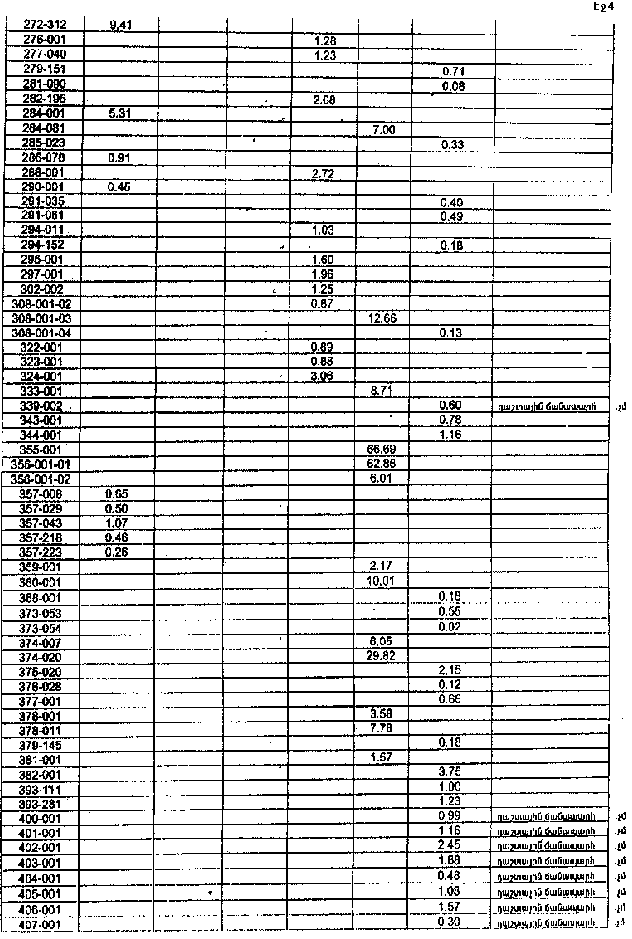 Էջ 4
272-312 9.41
276-001 1.28
277-040 1.23
279-151 0.71
281-090 0.08
282-195 2.08
284-001 5.31
284-081 7.00
285-023 0.33
286-078 0.91
288-001 2.72
290-001 0.45
291-035 0.40
291-081 0.49
294-011 1.03
294-152 0.18
295-001 1.60
297-001 1.96
302-002 1.25
308-001-02 0.87
308-001-03 12.66
308-001-04 0.13
322-001 0.89
323-001 0.88
324-001 3.06
333-001 8.71
339-002 0.60 դաշտային ճանապարհ
343-001 0.78
344-001 1.16
355-001 66.69
356-001-01 62.86
356-001-02 6.01
357-008 0.65
357-029 0.50
357-043 1.07
357-218 0.46
357-223 0.26
359-001 2.17
360-001 10.01
368-001 0.18
373-053 0.55
373-054 0.02
374-007 6.05
374-020 29.82
375-020 2.15
376-028 0.12
377-001 0.66
378-001 3.58
378-011 7.78
379-145 0.18
381-001 1.57
382-001 3.75
393-111 1.00
393-281 1.23
400-001 0.99 դաշտային ճանապարհ
401-001 1.16 դաշտային ճանապարհ
402-001 2.45 դաշտային ճանապարհ
403-001 1.88 դաշտային ճանապարհ
404-001 0.48 դաշտային ճանապարհ
405-001 1.03 դաշտային ճանապարհ
406-001 1.57 դաշտային ճանապարհ
407-001 0.30 դաշտային ճանապարհ